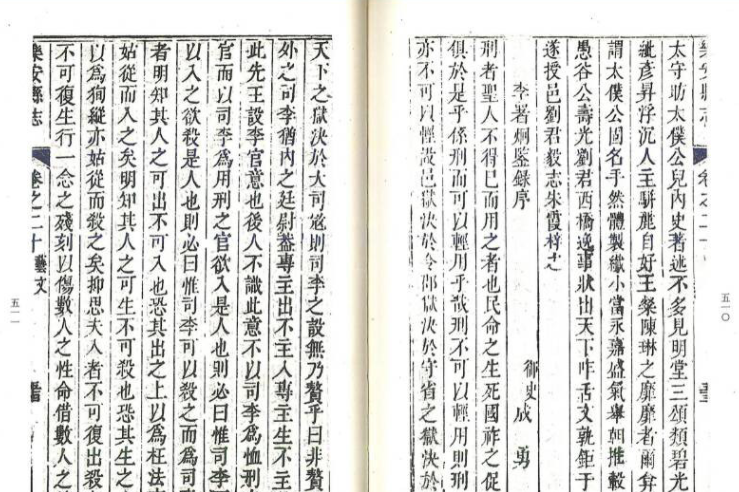 樂安縣志
卷之二十
五一〇
太守助太僕公兒內史著述不多見明堂三頌類碧光
紪彥昇浮沉人主駢麗自好王粲陳琳之靡靡者爾弇
謂太僕公固名乎然體製纖小當永嘉盛氣舉朝推轂
愚谷公壽光劉君西橋逸事狀出天下咋舌文孰鉅于
遂授邑劉君毅志朱霞梓之
李署炯監錄序
御史成勇
刑者聖人不得已而用之者也民命之生死國祚之促
俱於是乎係刑而可以輕用乎哉刑不可以輕用則刑
亦不可以輕設邑獄決於令郡獄決於守省之獄決於
天下之獄決於大司寇則司李之設無乃贅乎曰非贅
外之司李猶內之廷尉蓋專主出不主入專主生不主
此先王設李官意也後人不識此意不以司李爲恤刑
官而以司李爲用刑之官欲入是人也則必曰惟司李
以入之欲殺是人也則必曰惟司李可以殺之而爲司
者明知其人之可出不可入也恐其出之上以爲枉法
姑從而入之矣明知其人之可生不可殺也恐其生之
以爲狥縱亦姑從而殺之矣抑思夫入者不可復出殺
不可復生行一念之殘刻以傷數人之性命借數人之
樂安縣志
卷之二十
藝文
五一一